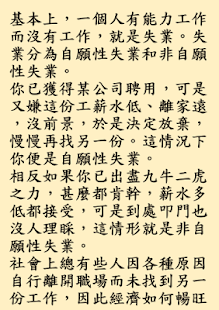 基本上，一個人有能力工作
而沒有工作，就是失業。失
業分為自願性失業和非自願
性失業。
你已獲得某公司聘用，可是
又嫌這份工薪水低、離家遠
，沒前景，於是決定放棄，
慢慢再找另一份。這情況下
你便是自願性失業。
相反如果你已出盡九牛二虎
之力，甚麼都肯幹，薪水多
低都接受，可是到處叩門也
沒人理睬，這情形就是非自
願性失業。
社會上總有些人因各種原因
自行離開職場而未找到另一
份工作，因此經濟如何暢旺